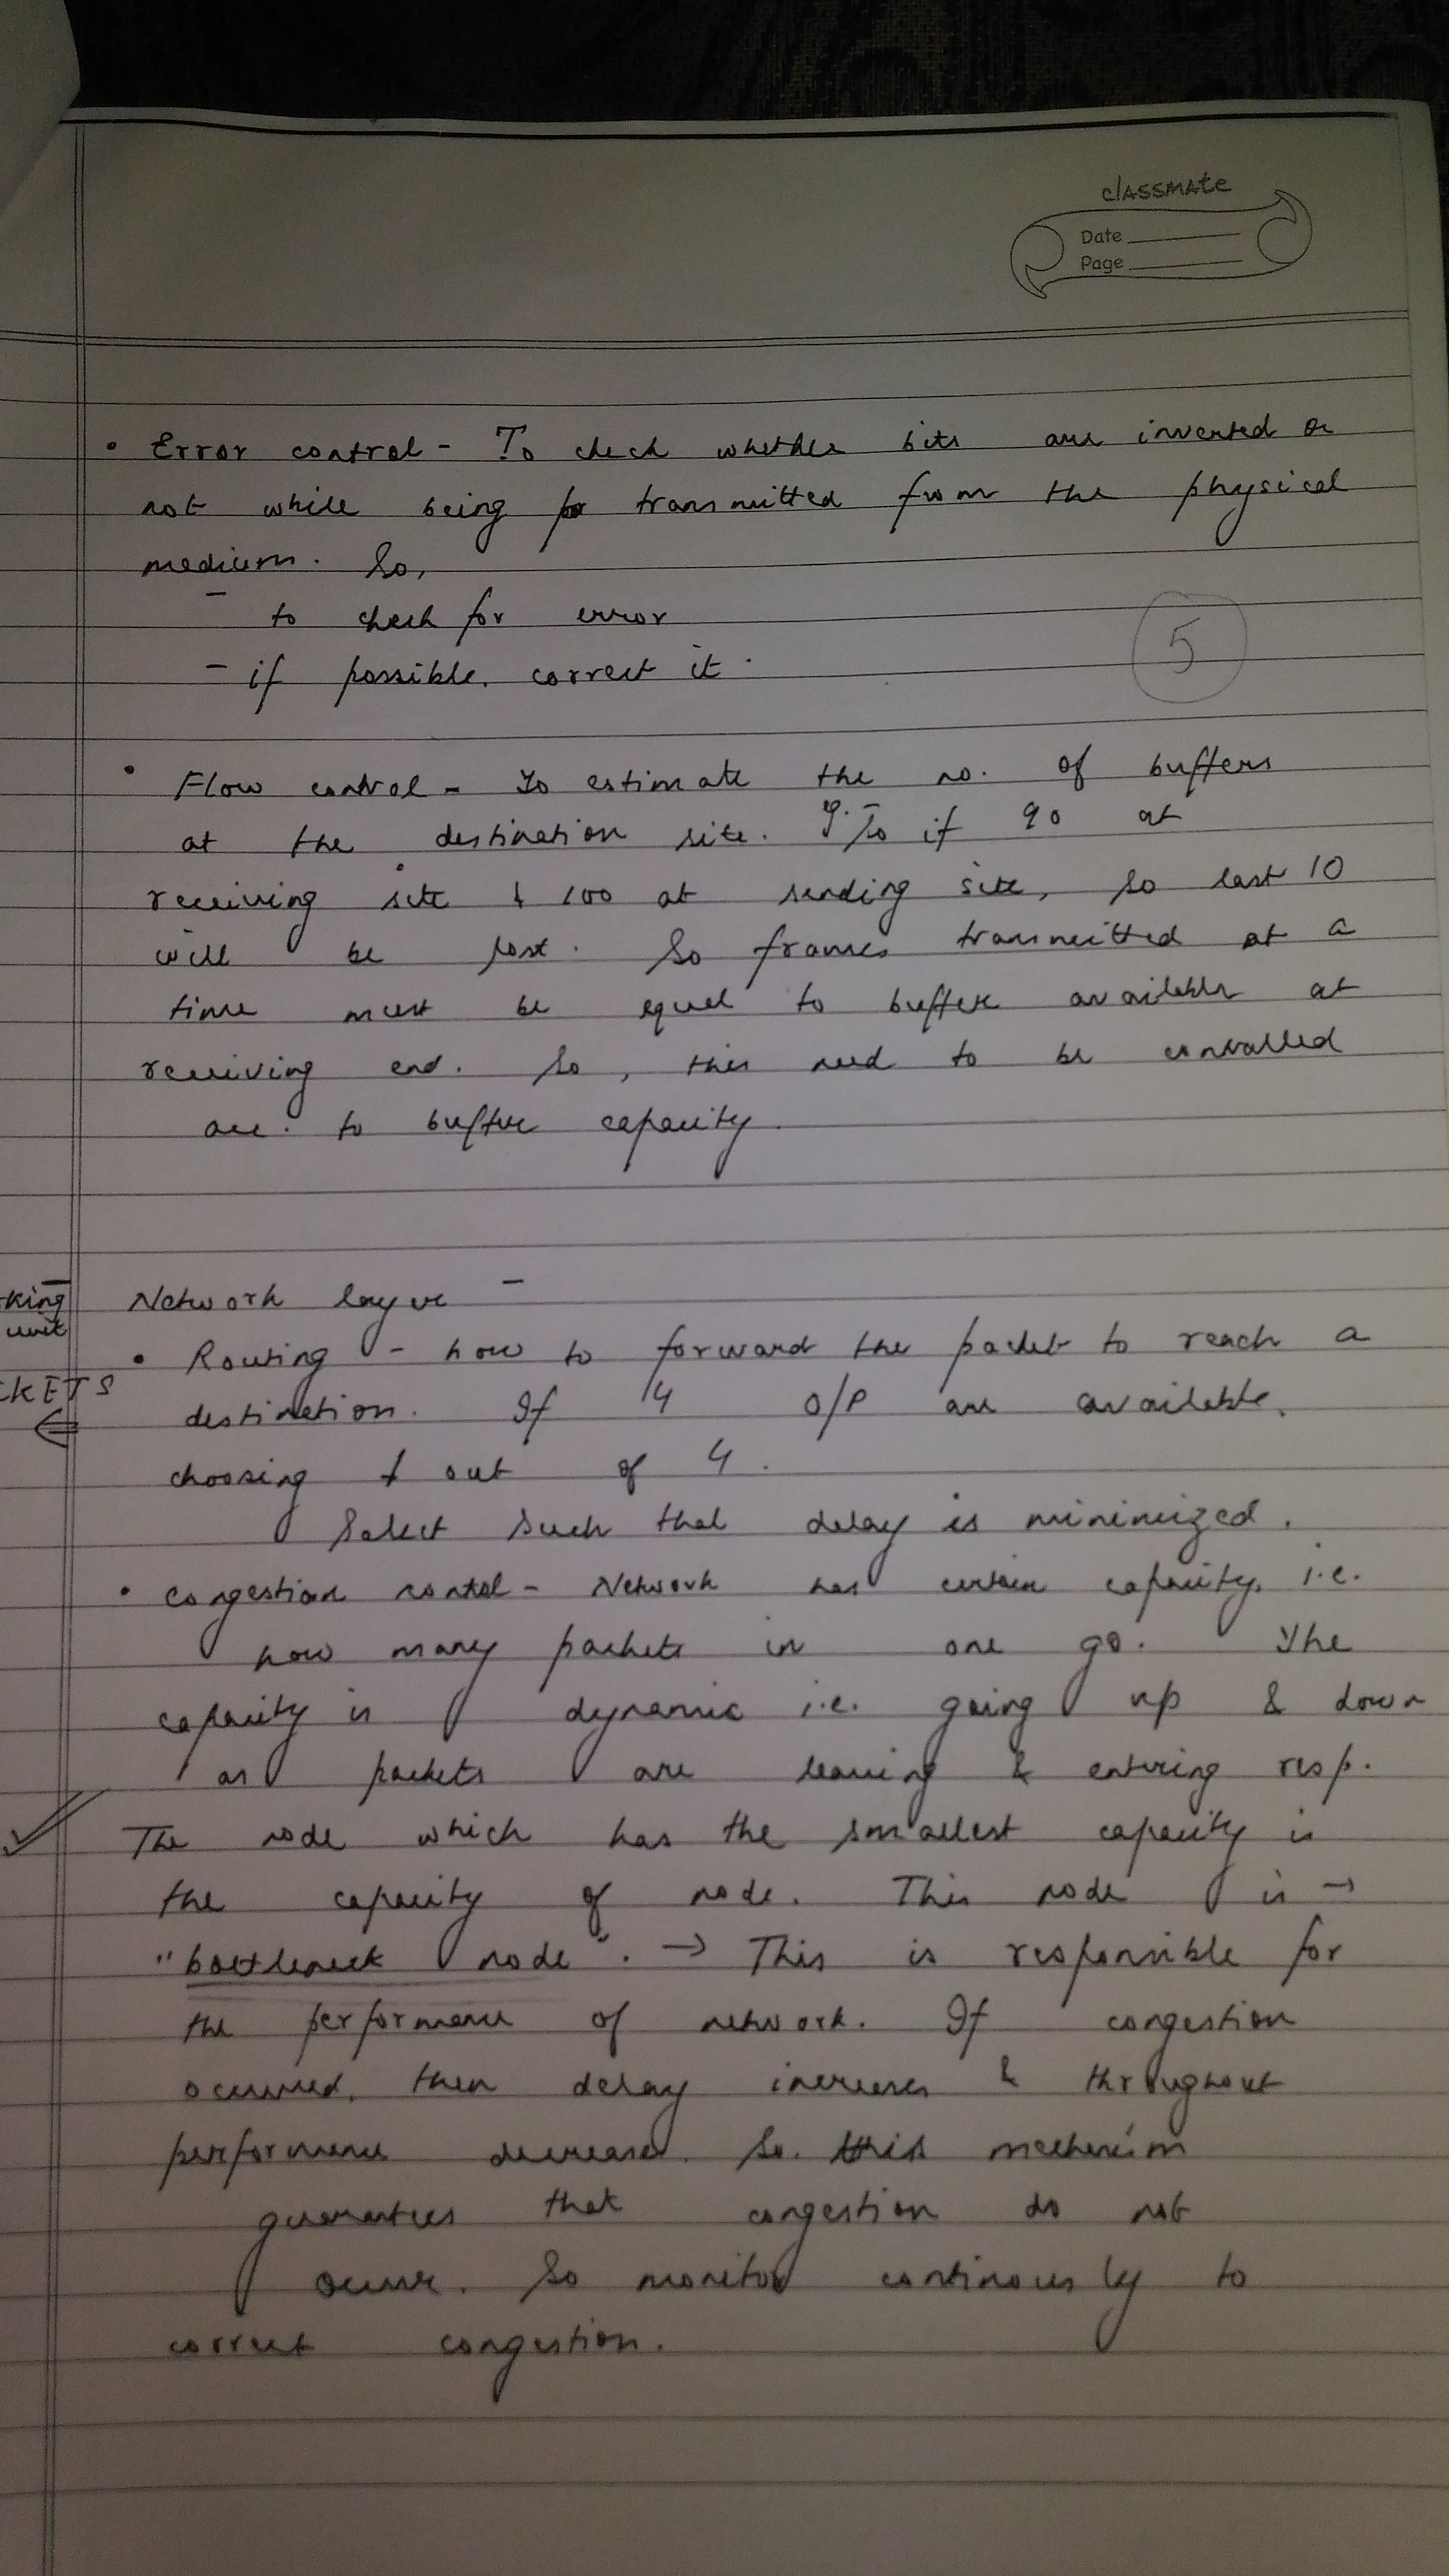 classmate
Date
Page
• Error control - To check whether bits are inverted or
not while being transmitted from the physical
medium. So,
- to check for error
- if possible, correct it.
5
• Flow control - To estimate the no. of buffers
at the destination site. So if 90 at
receiving site & 100 at sending site, so last 10
will be lost. So frames transmitted at a
time must be equal to buffer available at
receiving end. So, this need to be controlled
acc. to buffer capacity.
king
unit
Network layer -
• Routing - how to forward the packet to reach a
CKETS
destination. If 4 O/P are available,
choosing 1 out of 4.
Select such that delay is minimized.
• Congestion control - Network has certain capacity, i.e.
how many packets in one go. The
capacity is dynamic i.e. going up & down
as packets are leaving & entering resp.
The node which has the smallest capacity is
the capacity of node. This node is →
"bottleneck node". → This is responsible for
the performance of network. If congestion
occurred, then delay increases & throughout
performance decreases. So this mechanism
guarantees that congestion do not
occur. So monitor continously to
correct congestion.